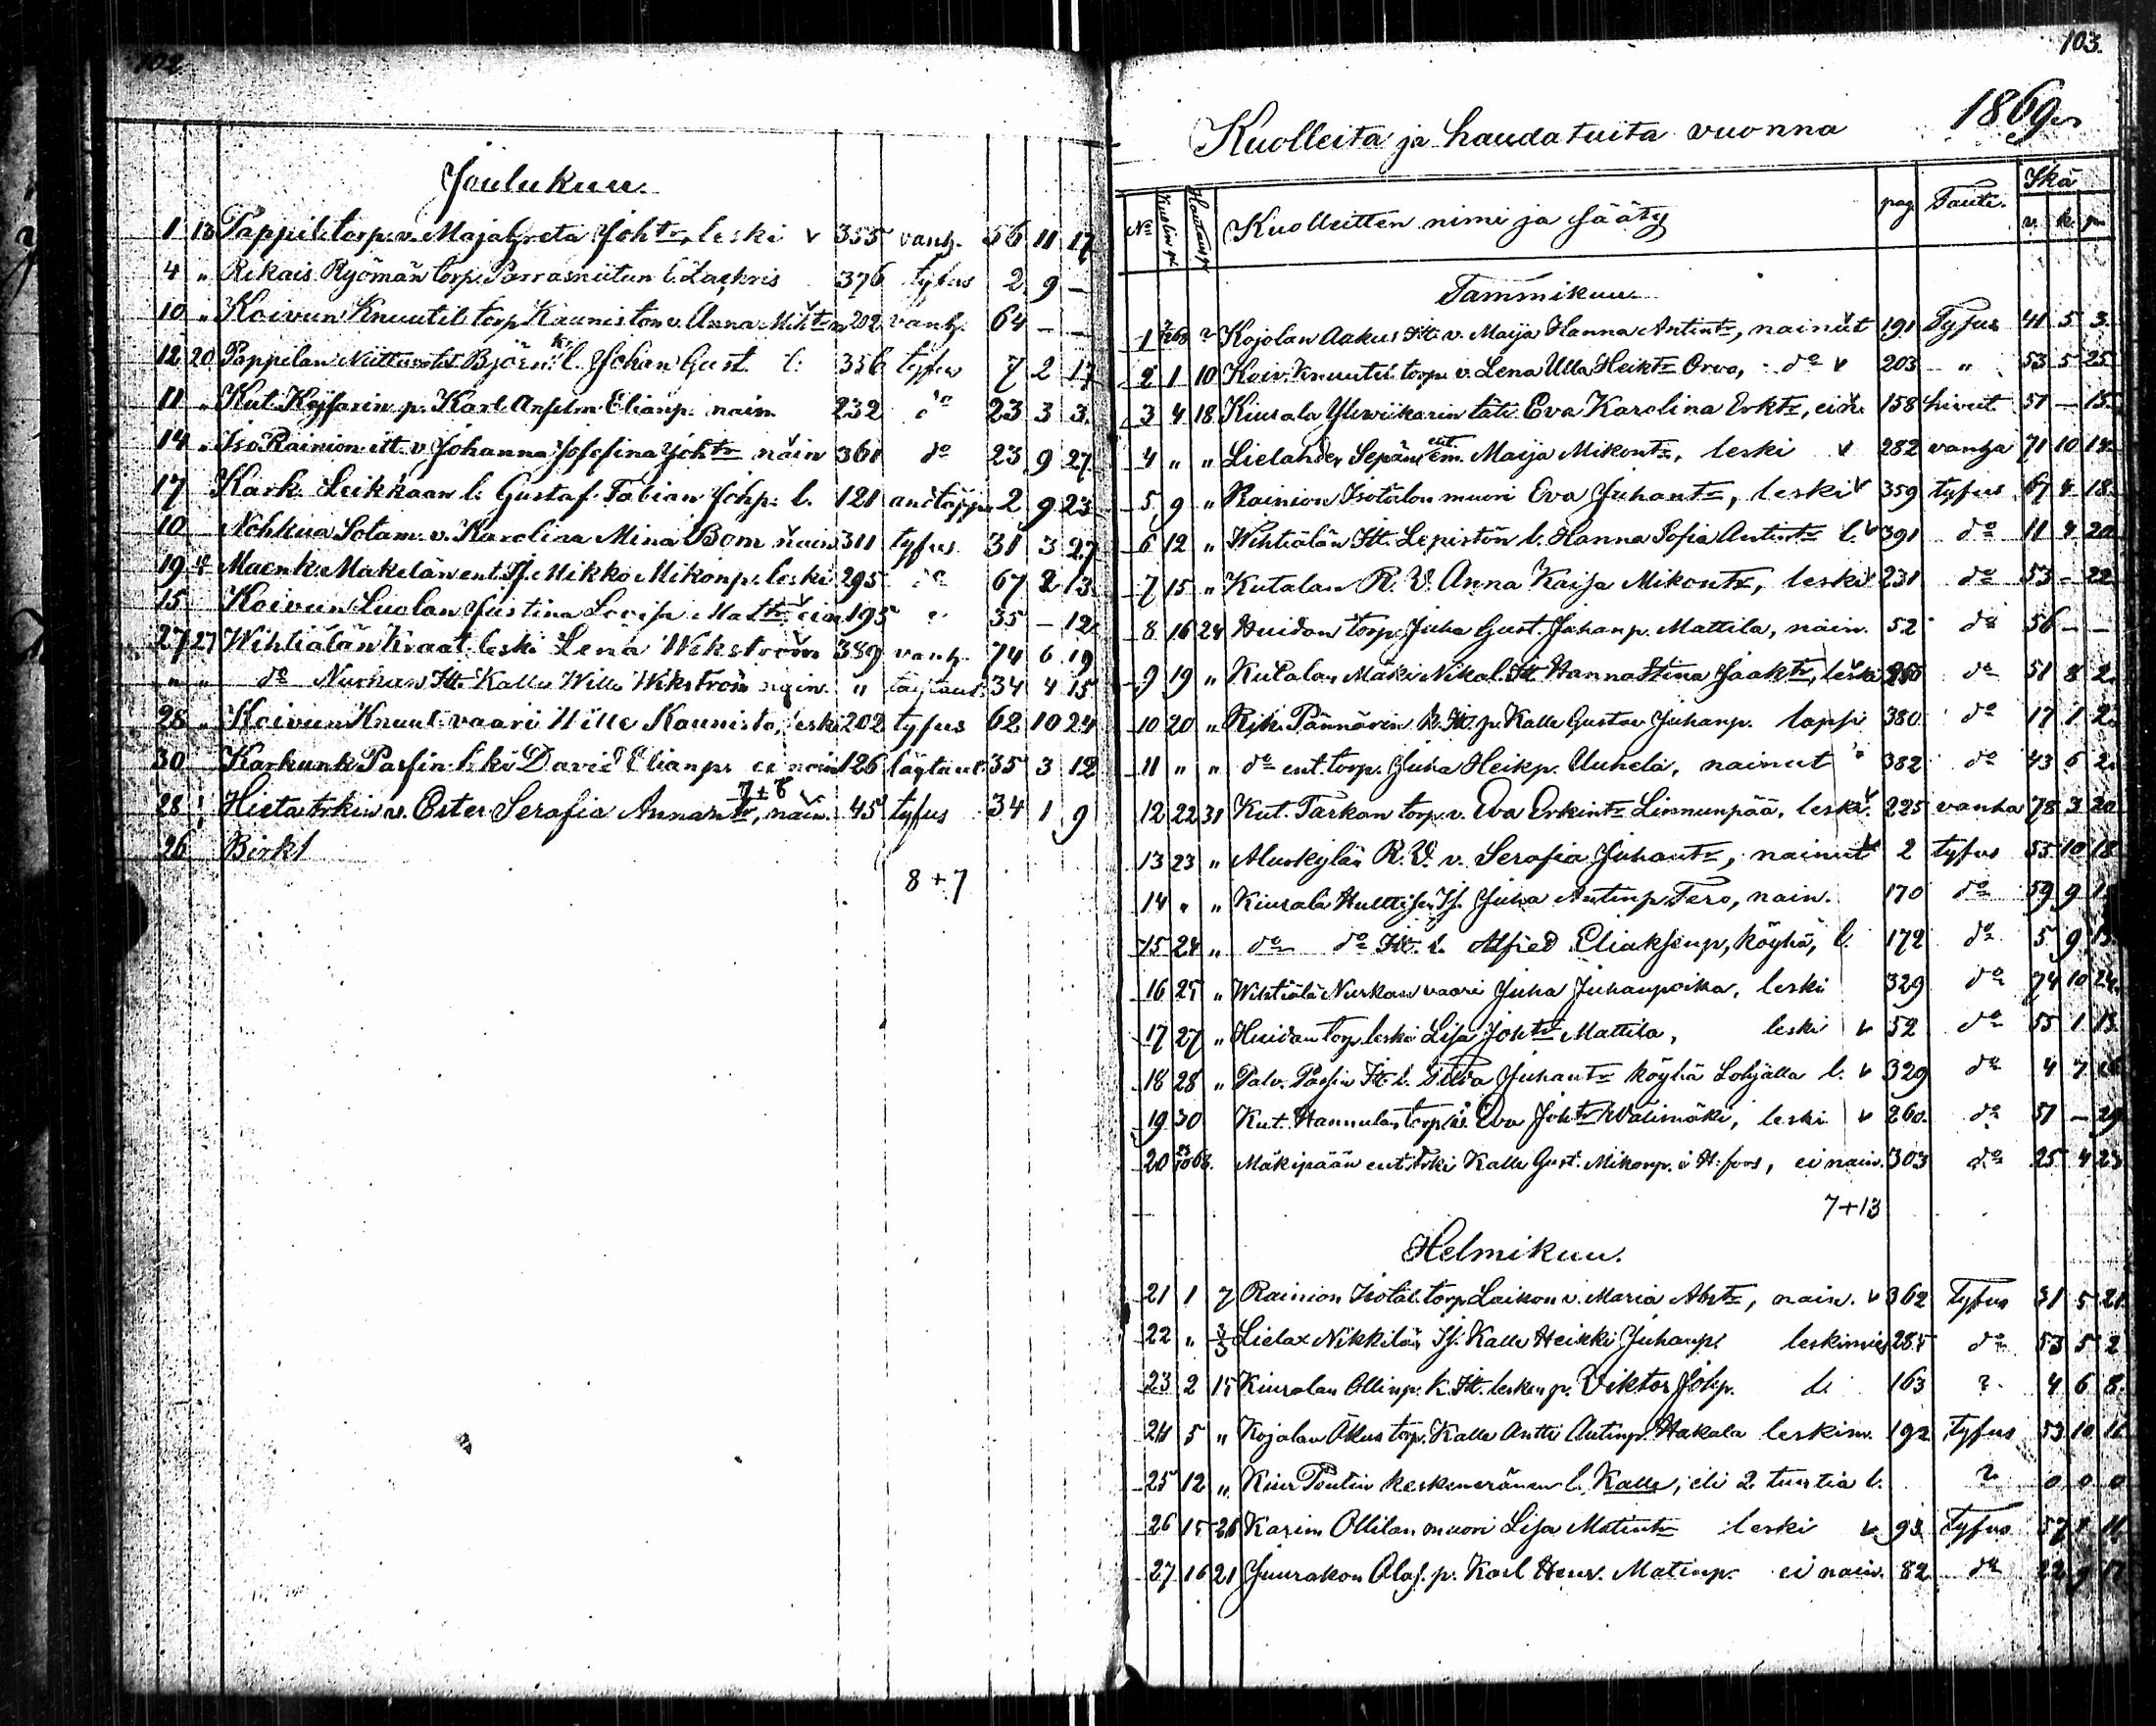 102
Joulukuu.
1 13 Pappil. torp. v. Maja Greta Joh.tr, leski v 355 vanh. 56 11 17
4 " Rikais Ryömän torp. Parrasniitun l. Zachris 376 tyfus 2 9 –
10 " Koivun Knuutil. torp. Kauniston v. Anna Mik.tr 202 vanh. 64 – –
12 20 Pappilan Niittum. Björn l. Johan Gust. l. 356 tyfus 7 2 17
11 " Kut. Kejsarin p. Karl Anselm Elianp. nain. 232 do 23 3 3
14 " Iso Rainion itt. v. Johanna Josefina Joh.tr nain 361 do 23 9 27
17 Kark. Leikkaan l. Gustaf Fabian Johp. l. 121 2 9 23
10 Nohkua Sotam. v. Karolina Mina Bom nain 311 tyfus 31 3 27
19 Maenk. Makelän ent. Is. Mikko Mikonp. leski 295 do 67 2 13
15 Koivun Luolan Justina Lovisa Mat.tr 195 " 35 – 12
27 27 Wihtiälän Kraat. leski Lena Wikström 389 vanh. 74 6 19
" " do Nurkan Itt. Kalle Wille Wikström nain. " 34 4 15
28 " Koivun Knuut. vaari Wille Kaunisto, leski 202 tyfus 62 10 24
30 Karkunk Passin l. David Elianp. ei nain 126 35 3 12
7 + 8
28 Hieta v. Ester Serafia Annan tr, nain. 45 tyfus 34 1 9
26 Birkl
8 + 7
103.
Kuolleita ja haudatuita vuonna 1869
No Kuolin p. Hautaus p. Kuolleitten nimi ja sääty pag. Tauti. Ikä v. k. p.
Tammikuu.
1 Kojolan Aakus Itt. v. Maija Hanna Antint., nainut 191 Tyfus 41 5 3
2 1 10 Koiv. Knuutil. torp. v. Lena Ulla Heikt. Orvo, do v 203 " 53 5 25
3 4 18 Kiurala Yliwiikarin täti Eva Karolina Erkt., 158 51 – 15
4 " " Lielahden Sepän em. Maija Mikont., leski v 282 vanha 71 10 14
5 9 " Rainion Isotalon muori Eva Juhant., leski v 359 tyfus 67 4 18
6 12 " Wihtiälän Itt. Lepistön l. Hanna Sofia Antint. l. v 391 do 11 4 20
7 15 " Kutalan R. V. Anna Kaisa Mikont., leski v 231 do 53 – 22
8 16 24 Huidan torp. Juha Gust. Juhanp. Mattila, nain. 52 do 56 – –
9 19 " Kutalan Mäki Nikal. Itt. Hanna Stina Jaakt., leski do 51 8 2
10 20 " Rik. Pännärin k. Itt. p. Kalle Gustav Juhanp. lapsi 380 do 17 1 2
11 " " do ent. torp. Juha Heikp. Uuhela, nainut 382 do 43 6 2
12 22 31 Kut. Taskan torp. v. Eva Erkint. Linnunpää, leski v. 225 vanha 78 3 20
13 23 " Aluskylän R. V. v. Serafia Juhant., nainut 2 tyfus 55 10 18
14 " " Kiurala Hulttisen Is. Juha Antinp. Tero, nain. 170 do 59 9
15 24 " do do Itt. l. Alfred Eliaksenp., köyhä, l. 172 do 5 9 15
16 25 " Wihtiälä Nurkan vaari Juha Juhanpoika, leski 329 do 74 10 24
17 27 " Huidan torp. leski Lisa Joh.tr Mattila, leski v 52 do 55 1 13
18 28 " Palv. Passin Itt. l. Juhant. köyhä Lohjalla l. v 329 do 4 7
19 30 Kut. Hannulan torp. Eva Joh.tr Wälimäki, leski v 260 do 51 – 29
20 Mäkipään ent. Kalle Gust. Mikonp. i H:fors, ei nain. 303 do 25 4 23
7+13
Helmikuu.
21 1 7 Rainion Isotal. torp. Laikon v. Maria Abrt., nain. v 362 Tyfus 31 5 21
22 " Lielax Nikkilän Is. Kalle Heikki Juhanp. leskimies 285 do 53 5 2
23 2 15 Kiuralan Ollinp. k. Itt. lesken p. Viktor Johp. l. 163 ? 4 6 8
24 5 " Kojalan Akus torp. Kalle Antti Antinp. Hakala leskim. 192 tyfus 53 10 16
25 12 " Kiur Pentin keskeneränen l. Kalle, eli 2 tuntia l. ? 0 0 0
26 15 28 Karim Ollilan muori Lisa Matint. leski v 93 Tyfus 57 1 11
27 16 21 Juurakon Olaf. p. Karl Henr. Matinp. ei nain. 82 do 22 9 17